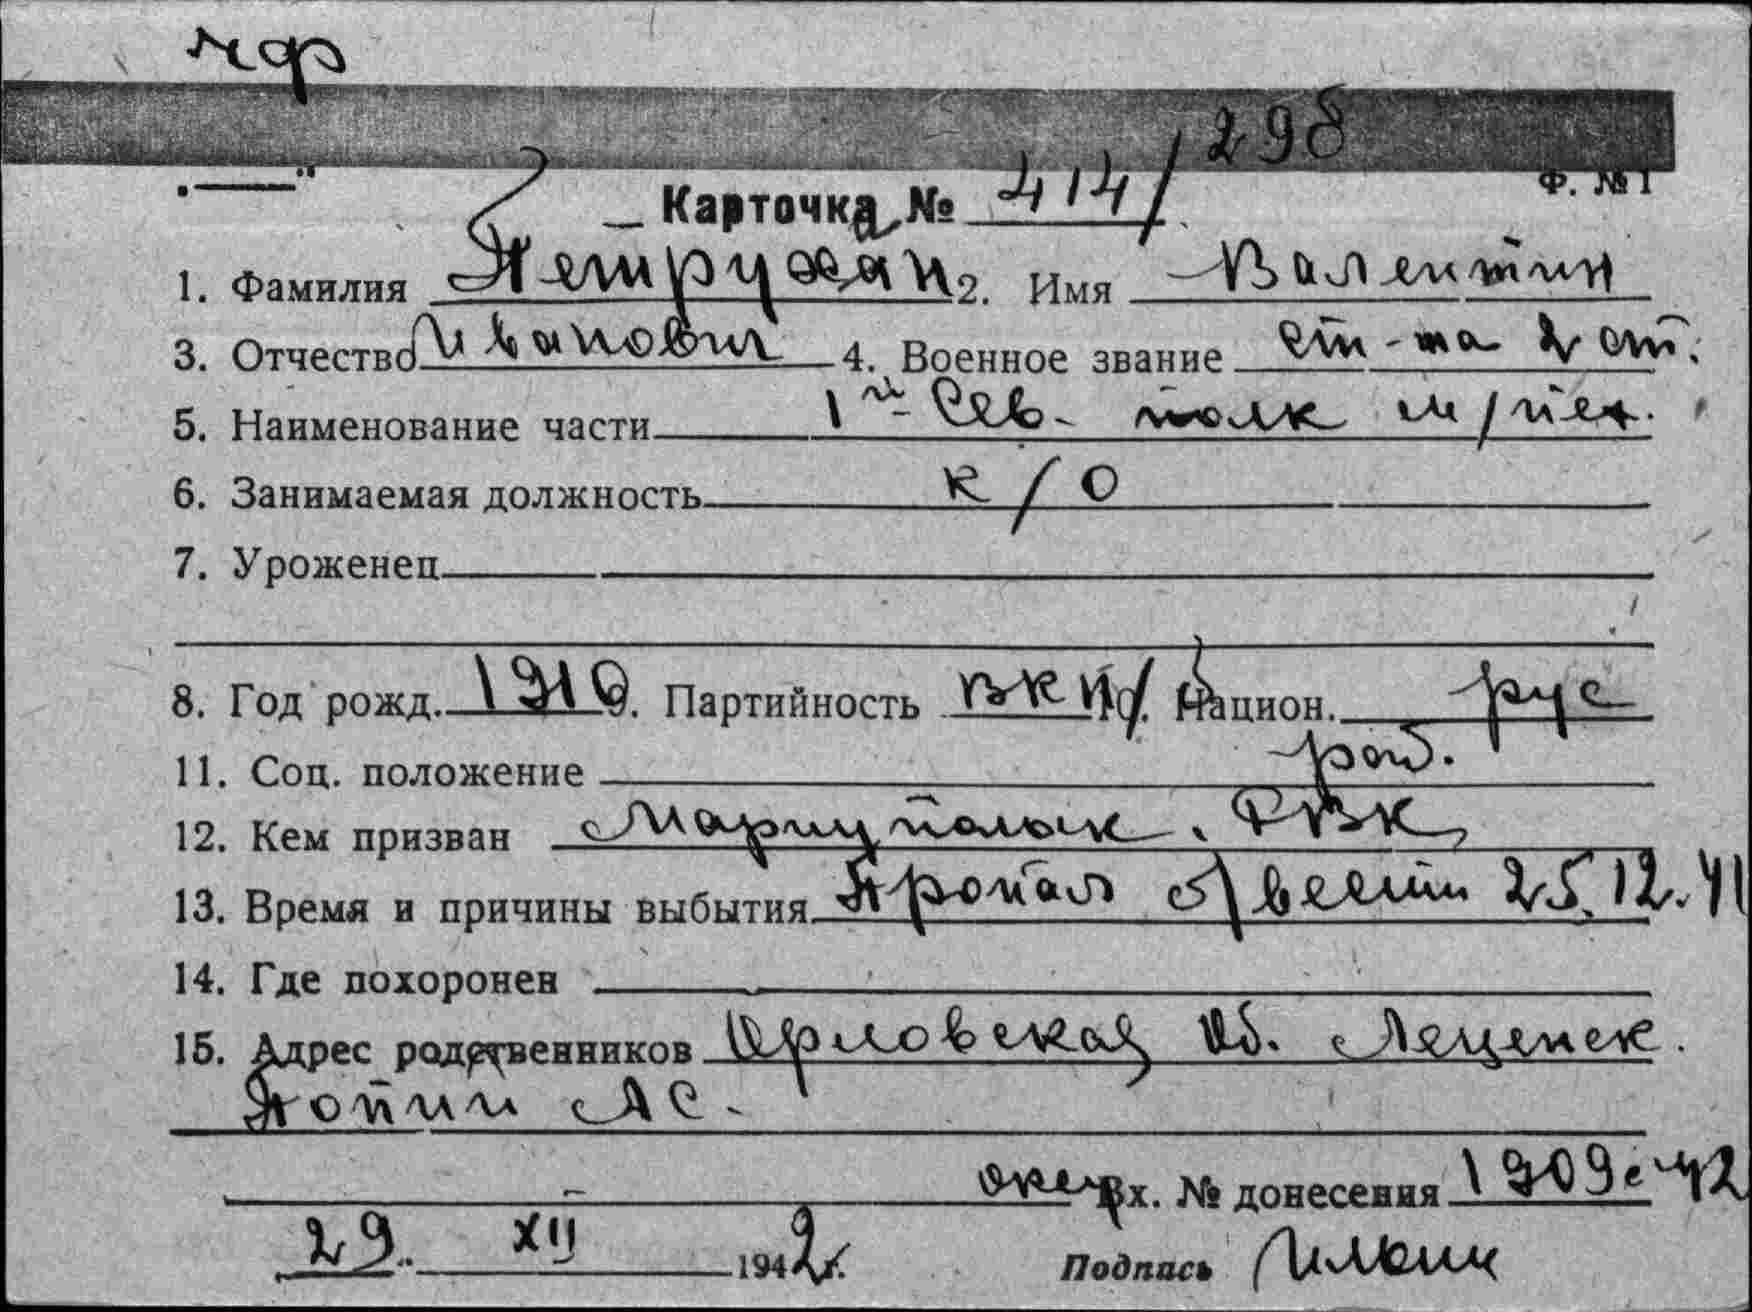 298
Ф. № 1
Карточка № 414/
1. Фамилия 2. Имя Валентин
3. Отчество Иванович 4. Военное звание ст-на 2 ст.
5. Наименование части 1й Сев. полк м/пех.
6. Занимаемая должность к/о
7. Уроженец
8. Год рожд. 1910 9. Партийность ВКП/б Национ. рус
11. Соц. положение раб.
12. Кем призван Мариупольск. РВК,
13. Время и причины выбытия Пропал без вести 25.12.41
14. Где похоронен
15. Адрес родственников Орловская об. Ляценск.
Попии АС.
Вх. № донесения 1909с-42
29. XII 1942 г.
Подпись